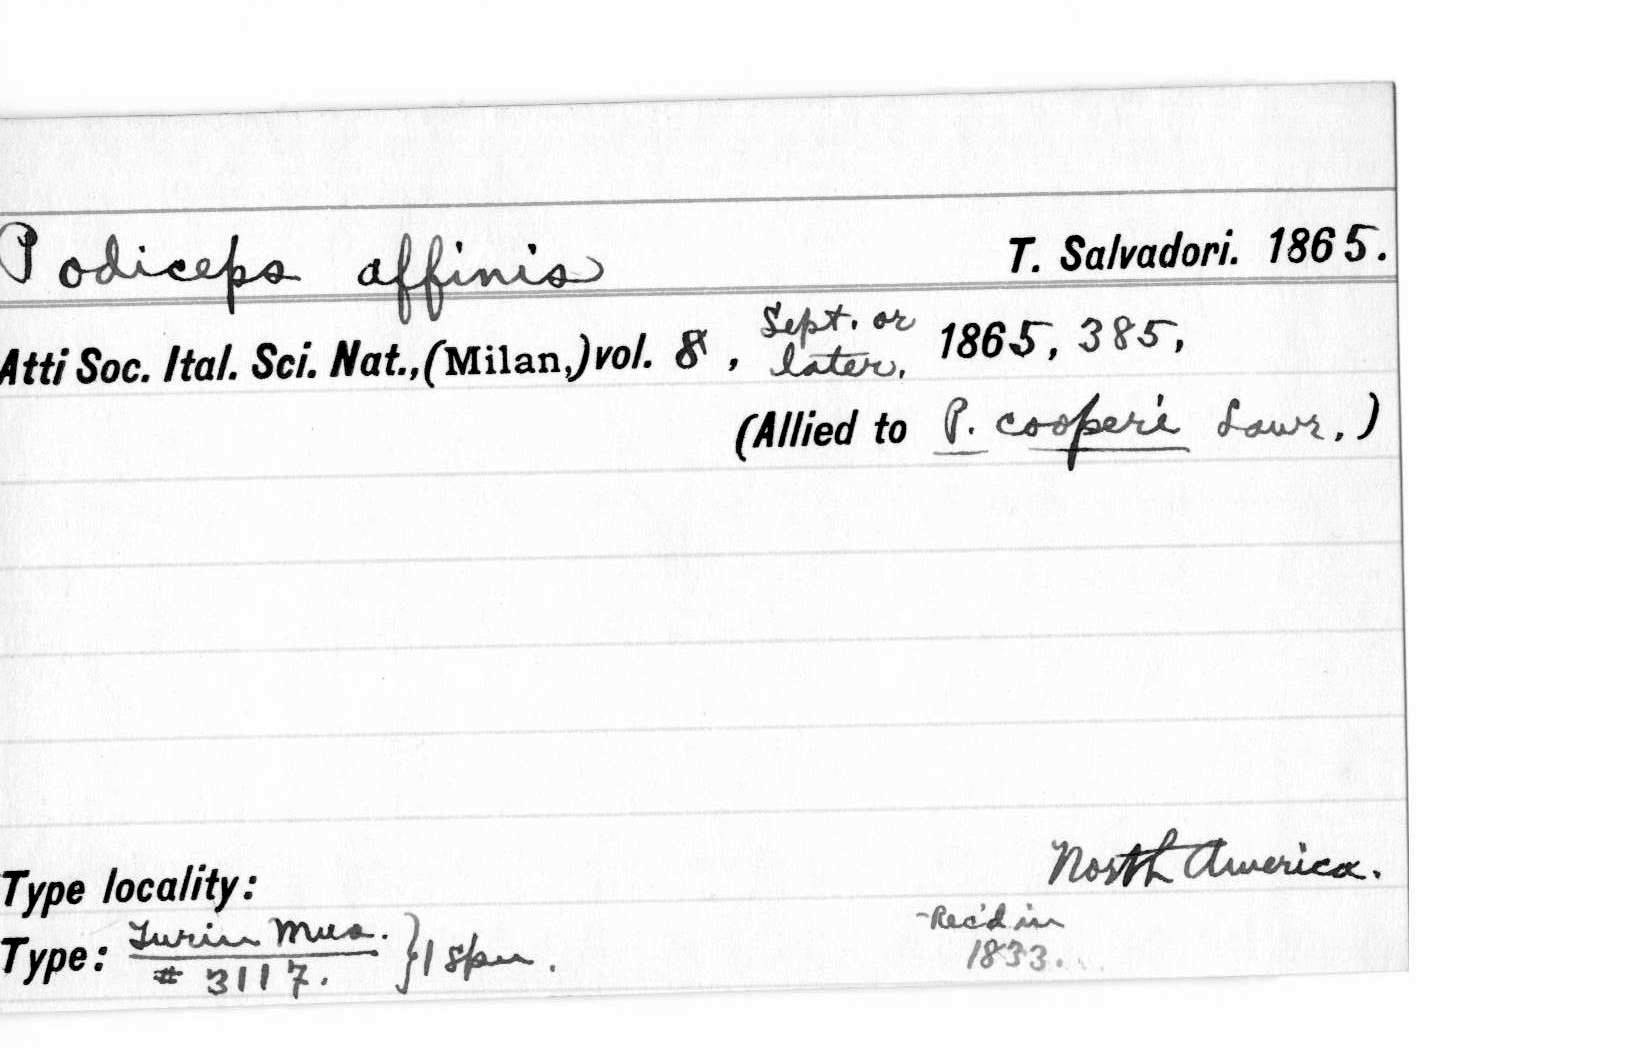 Podiceps affinis T. Salvadori. 1865.
Atti Soc. Ital. Sci. Nat., (Milan,) vol. 8, Sept. or later, 1865, 385,
(Allied to P. cooperi Lawr.)
Type locality: North America.
Type: Turin Mus. # 3117. } 1 spm. Rec'd in 1833.